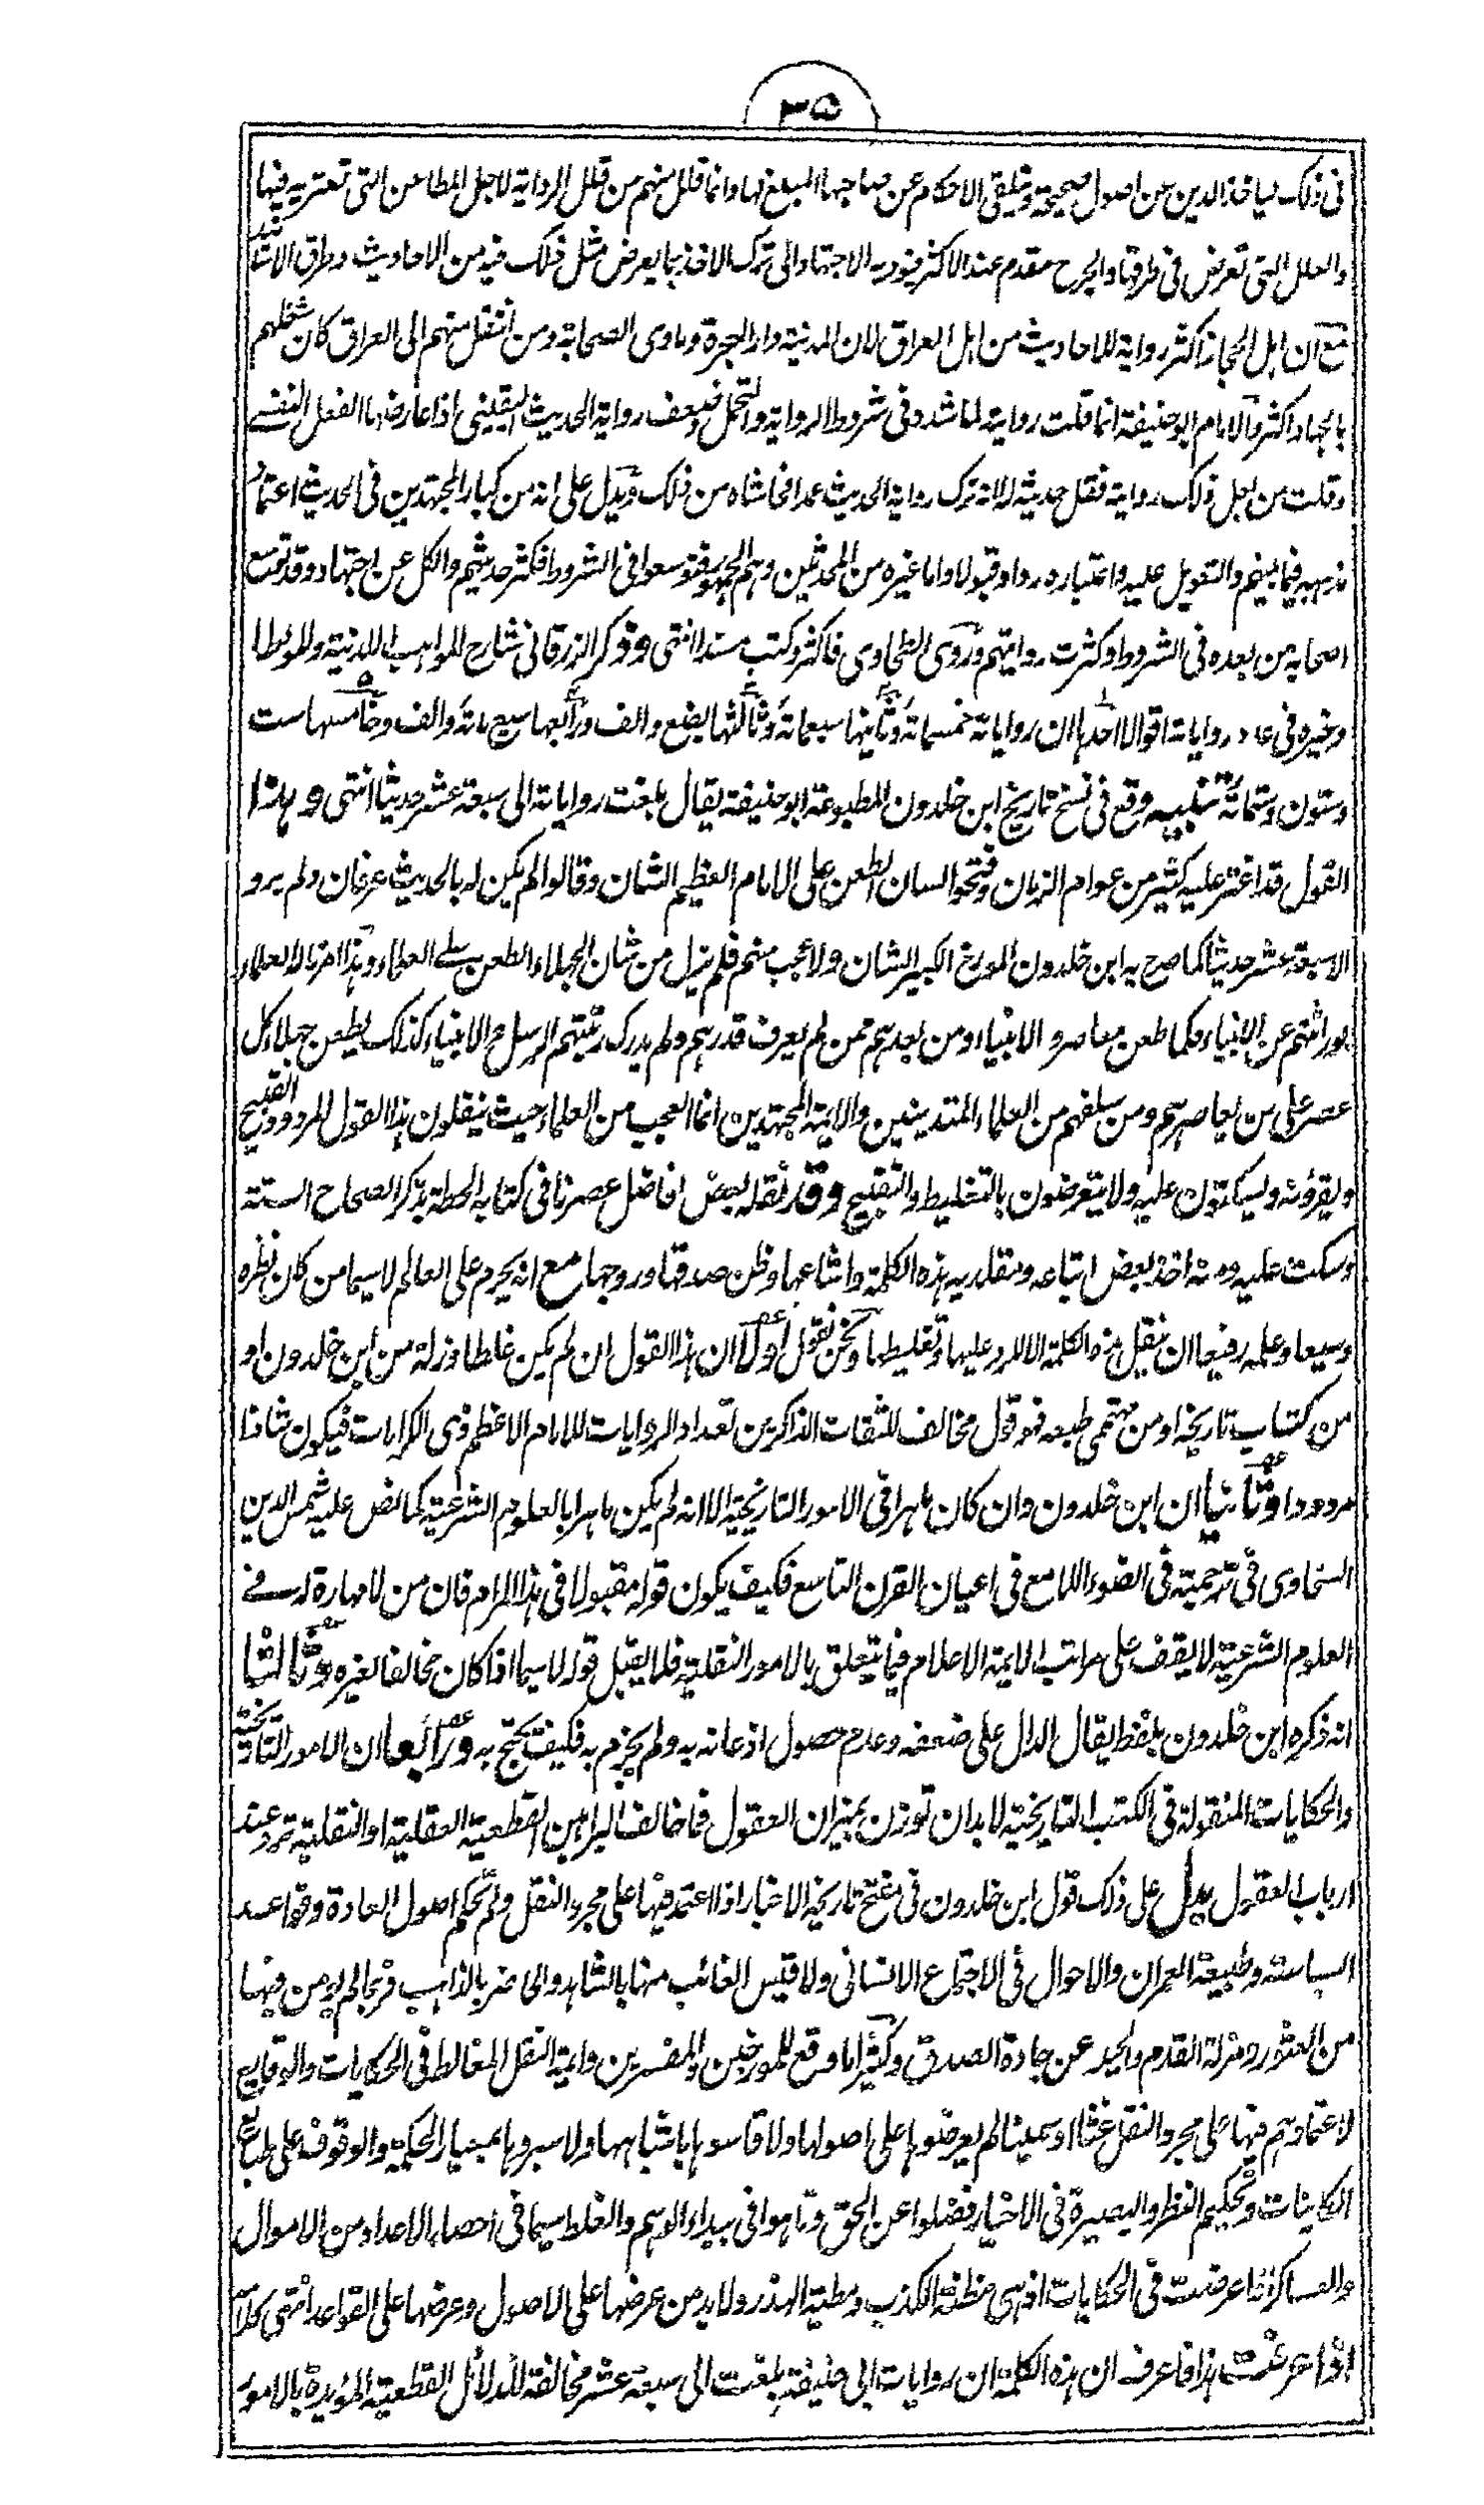 ٣٥
فى ذلك لياخذ الدين عن اصول صحيحة وتلقى الاحكام عن صاحبها المبلغ لها وانما قلل منهم من قلل الرواية لاجل المطاعن التى تعتريه فيها
والعلل التى تعرض فى طرقها والجرح مقدم عند الاكثر فيؤديه الاجتهاد الى ترك الاخذ بما يعرض مثل ذلك فيه من الاحاديث وطرق الاسانيد
مع ان اهل الحجاز اكثر رواية للاحاديث من اهل العراق لان المدينة دار الهجرة وماوى الصحابة ومن انتقل منهم الى العراق كان شغلهم
بالجهاد اكثر والامام ابو حنيفة انما قلت روايته لما شدد فى شروط الرواية والتحمل وضعف رواية الحديث اليقينى اذا عارضها الفعل النفسے
وقلت من اجل ذلك رواية فقل حديثه لا انه ترك رواية الحديث عمدا فحاشاه من ذلك ويدل على انه من كبار المجتهدين فى الحديث اعتماد
مذهبه فيما بينهم والتعويل عليه واعتباره ردا وقبولا واما غيره من المحدثين وهم الجمهور فتوسعوا فى الشروط فكثر حديثهم والكل عن اجتهاد وقد توسع
اصحابه من بعده فى الشروط وكثرت روايتهم وروى الطحاوى فاكثر وكتب مسندا انتهى وذكر الزرقانى شارح المواهب اللدنية والموطا
وغيره فى عدد رواياته اقوالا احدها ان رواياته خمسمائة وثانيها سبعمائة وثالثها بضع والف ورابعها سبع مائة والف وخامسها ست
وستون وستمائة تنبيه وقع فى نسخ تاريخ ابن خلدون المطبوعة ابو حنيفة يقال بلغت رواياته الى سبعة عشر حديثا انتهى وهذا
القول قد اغتر عليه كثير من عوام الزمان وفتحوا لسان الطعن على الامام العظيم الشان وقالوا لم يكن له بالحديث عرفان ولم يرو
الا سبعة عشر حديثا كما صرح به ابن خلدون المورخ الكبير الشان ولا عجب منهم فلم يزل من شان الجهلاء الطعن علے العلماء وهذا امر ناله العلماء
بوراثتهم عن الانبياء فكما طعن معاصرو الانبياء ومن بعدهم ممن لم يعرف قدرهم ولم يدرك رتبتهم الرسل والانبياء كذلك يطعن جهلاء كل
عصر على من يعاصرهم ومن سلفهم من العلماء المتدينين والايمة المجتهدين انما العجب من العلماء حيث ينقلون هذا القول المردود القبيح
ويقرؤنه ويسكتون عليه ولا يتعرضون بالتغليط والتقبيح وقد نقله بعض افاضل عصرنا فى كتابه الحطة بذكر الصحاح الستة
وسكت عليه ومنه اخذ بعض اتباعه ومقلديه هذه الكلمة واشاعها وظن صدقها وروجها مع انه يحرم على العالم لا سيما من كان نظره
وسيعا وعلمه رفيعا ان ينقل هذه الكلمة الا للرد عليها وتغليطها ونحن نقول اولا ان هذا القول ان لم يكن غلطا وزلة من ابن خلدون او
من كتاب تاريخه او من مهتمى طبعه فهو قول مخالف للثقات الذاكرين تعداد الروايات للامام الاعظم ذى الكرامات فيكون شاذا
مردودا وثانيا ان ابن خلدون وان كان ماهرا فى الامور التاريخية الا انه لم يكن ماهرا بالعلوم الشرعية كما نص عليه شمس الدين
السخاوى فى ترجمته فى الضوء اللامع فى اعيان القرن التاسع فكيف يكون قوله مقبولا فى هذا المرام فان من لا مهارة له فے
العلوم الشرعية لا يقف على مراتب الايمة الاعلام فيما يتعلق بالامور النقلية فلا يقبل قوله لا سيما اذا كان مخالفا لغيره وثالثا
انه ذكره ابن خلدون بلفظ يقال الدال على ضعفه وعدم حصول اذعانه به ولم يجزم به فكيف يحتج به ورابعا ان الامور التاريخية
والحكايات المنقولة فى الكتب التاريخية لا بد ان توزن بميزان العقول فما خالف البراهين القطعية العقلية او النقلية ترد عند
ارباب العقول يدل على ذلك قول ابن خلدون فى مفتتح تاريخه الاخبار اذا اعتمد فيها على مجرد النقل ولم تحكم اصول العادة وقواعد
السياسة وطبيعة العمران والاحوال فى الاجتماع الانسانى ولا قيس الغائب منها بالشاهد والحاضر بالذاهب فربما لم يومن فيها
من العثور ومزلة القدم والحيد عن جادة الصدق وكثيرا ما وقع للمورخين والمفسرين وايمة النقل المغالط فى الحكايات والوقايع
لاعتمادهم فيها على مجرد النقل غثا او سمينا لم يعرضوها على اصولها ولا قاسوها باشباهها ولا سبروها بمعيار الحكمة والوقوف على طبايع
الكاينات وتحكيم النظر والبصيرة فى الاخبار فضلوا عن الحق وتاهوا فى بيداء الوهم والغلط سيما فى احصاء الاعداد من الاموال
والعساكر اذا عرضت فى الحكايات اذ هى مظنة الكذب ومطية الهذر ولا بد من عرضها على الاصول وعرضها على القواعد انتهى كلامه
اذا عرفت هذا فاعرف ان هذه الكلمة ان روايات ابى حنيفة بلغت الى سبعة عشر مخالفة للدلائل القطعية المؤيدة بالامور